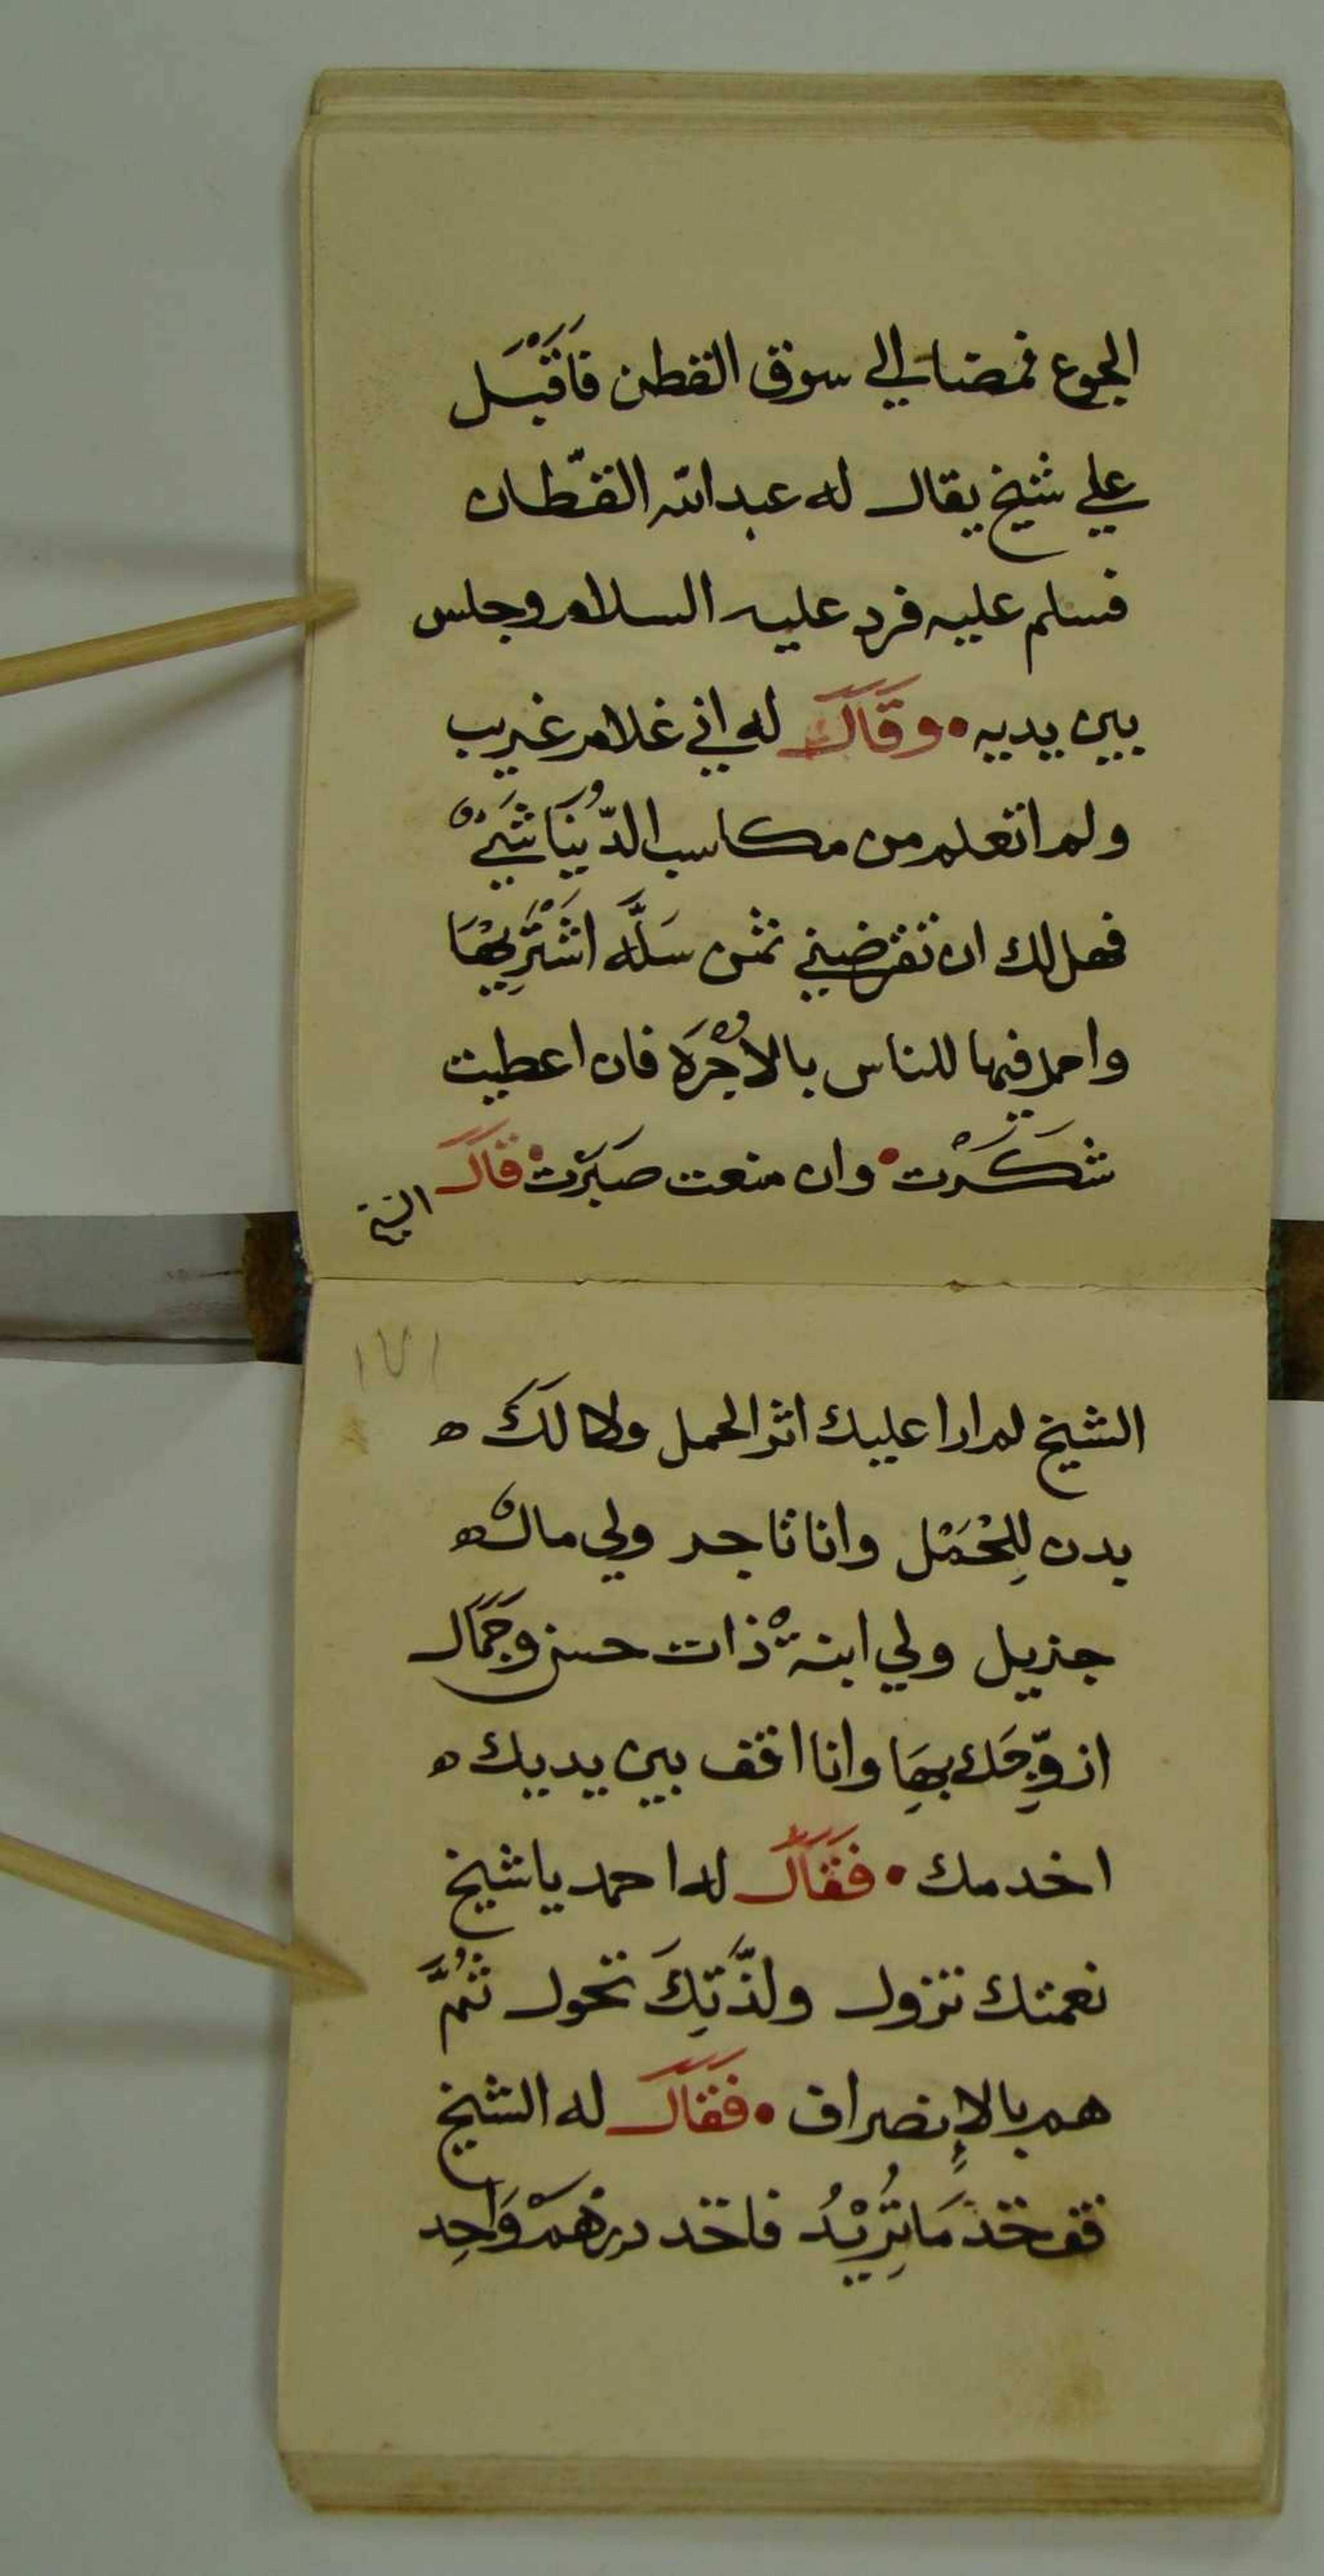 الجوع فمضا الي سوق القطن فَاَقْبَل
علي شيخ يقال له عبد الله القطّان
فسلم عليه فرد عليه السلام وجلس
بين يديه • وقَالَ له اني غلام غريب
ولم اتعلم من مكاسب الدّنيَا شَيْءٌ
فهل لك ان تقرضيني ثمن سَلَّه اشْتَرِيهَا
واحمل فيها للناس بالاُجْرَه فان اعطيت
شَكَرْت • وان منعت صَبَرْت • قال
الشيخ
١٧١
الشيخ لم ارا عليك اثر الحمل ولا لَكَ ه
بدن لِلْحَمْل وانا تاجر ولي مالٌ ه
جزيل ولي ابنةْ ذات حسن وجَمَال
ازوِّجَك بِهَا وانا اقف بين يديك ه
اخدمك • فقَال له احمد يا شيخ
نعمتك تزول ولذّتِكَ تحول ثُمَّ
هم بالإنصراف • فقَال له الشيخ
قف خذ مَا تُرِيْدُ فاخذ درْهَمْ وَاحِد